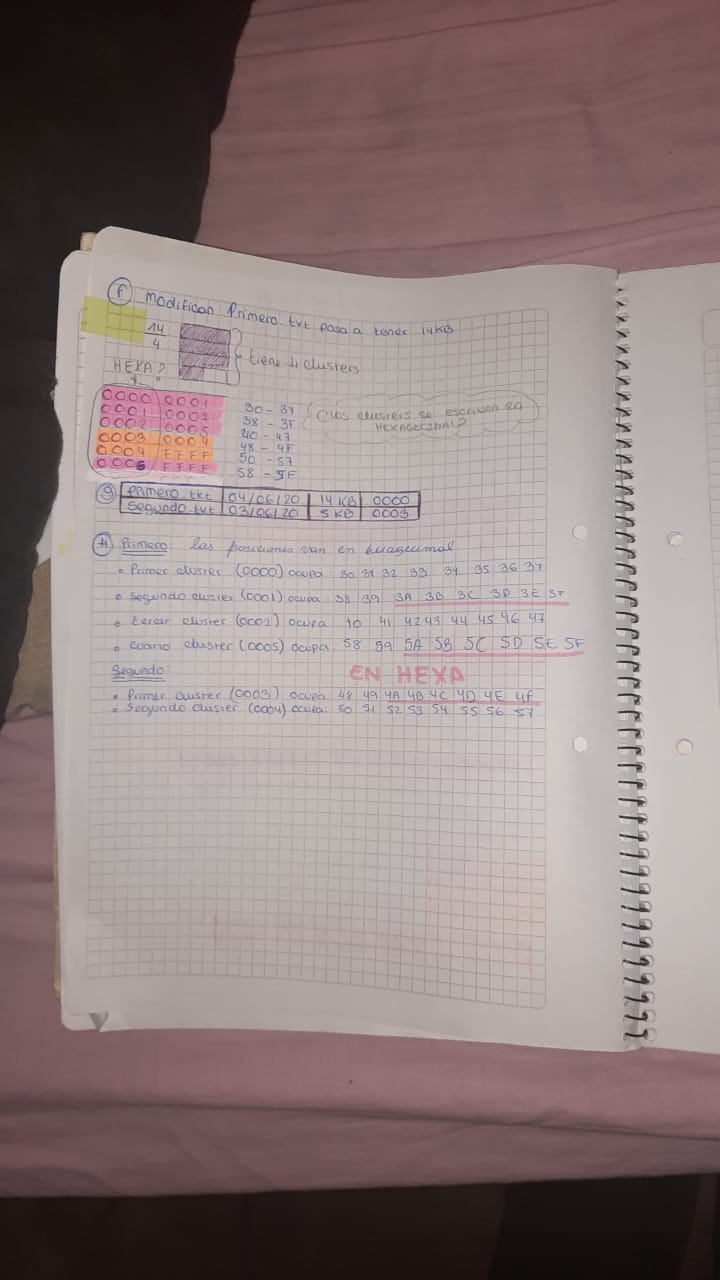 f Modifican Primero txt pasa a tener 14KB
14
4
tiene 4 clusters
HEXA?
0000 0001
0001 0002
0002 0005
0003 0004
0004 FFFF
0005 FFFF
30 - 37
38 - 3F
40 - 47
48 - 4F
50 - 57
58 - 5F
¿los clusters se escriben en
HEXAGESIMAL?
g Primero.txt 04/06/20 14 KB 0000
Segundo.txt 03/06/20 5 KB 0003
H Primero: las posiciones van en hexagecimal
• Primer cluster (0000) ocupa: 30 31 32 33 34 35 36 37
• Segundo cluster (0001) ocupa: 38 39 3A 3B 3C 3D 3E 3F
• tercer cluster (0002) ocupa 40 41 42 43 44 45 46 47
• Cuarto cluster (0005) ocupa 58 59 5A 5B 5C 5D 5E 5F
Segundo:
EN HEXA
• Primer cluster (0003) ocupa 48 49 4A 4B 4C 4D 4E 4F
• Segundo cluster (0004) ocupa: 50 51 52 53 54 55 56 57